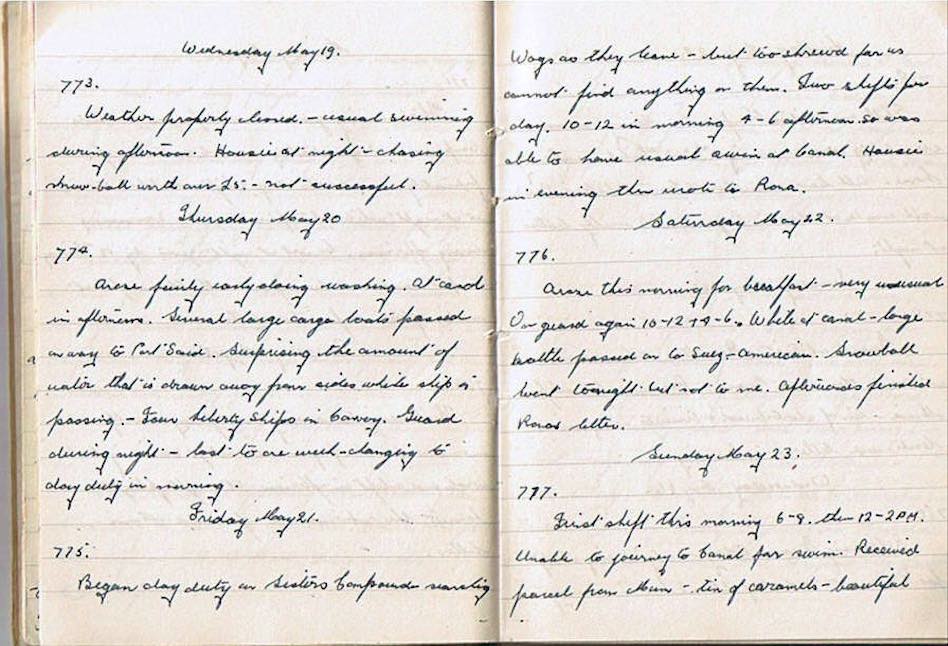 Wednesday May 19.
773.
Weather properly closed. - usual swimming
during afternoon. Housie at night - chasing
snow-ball worth over £5. - not successful.
Thursday May 20
774.
Arose fairly early doing washing. At canal
in afternoon. Several large cargo boats passed
on way to Port Said. Surprising the amount of
water that is drawn away from sides while ship is
passing. - Four liberty ships in convoy. Guard
during night - last to one week - changing to
day duty in morning.
Friday May 21.
775.
Began day duty on Sisters Compound searching
Wogs as they leave - but too shrewd for us
cannot find anything on them. Two shifts per
day. 10-12 in morning 4-6 afternoon. so was
able to have usual swim at Canal. Housie
in evening then wrote to Rona.
Saturday May 22.
776.
Arose this morning for breakfast - very unusual
On guard again 10-12 + 4-6. While at canal - large
passed on to Suez - American. Snowball
went tonight but not to me. Afterwards finished
Ronas letter.
Sunday May 23.
777.
First shift this morning 6-8. then 12-2 P.M.
Unable to journey to Canal for swim. Received
parcel from Mum - tin of caramels - beautiful